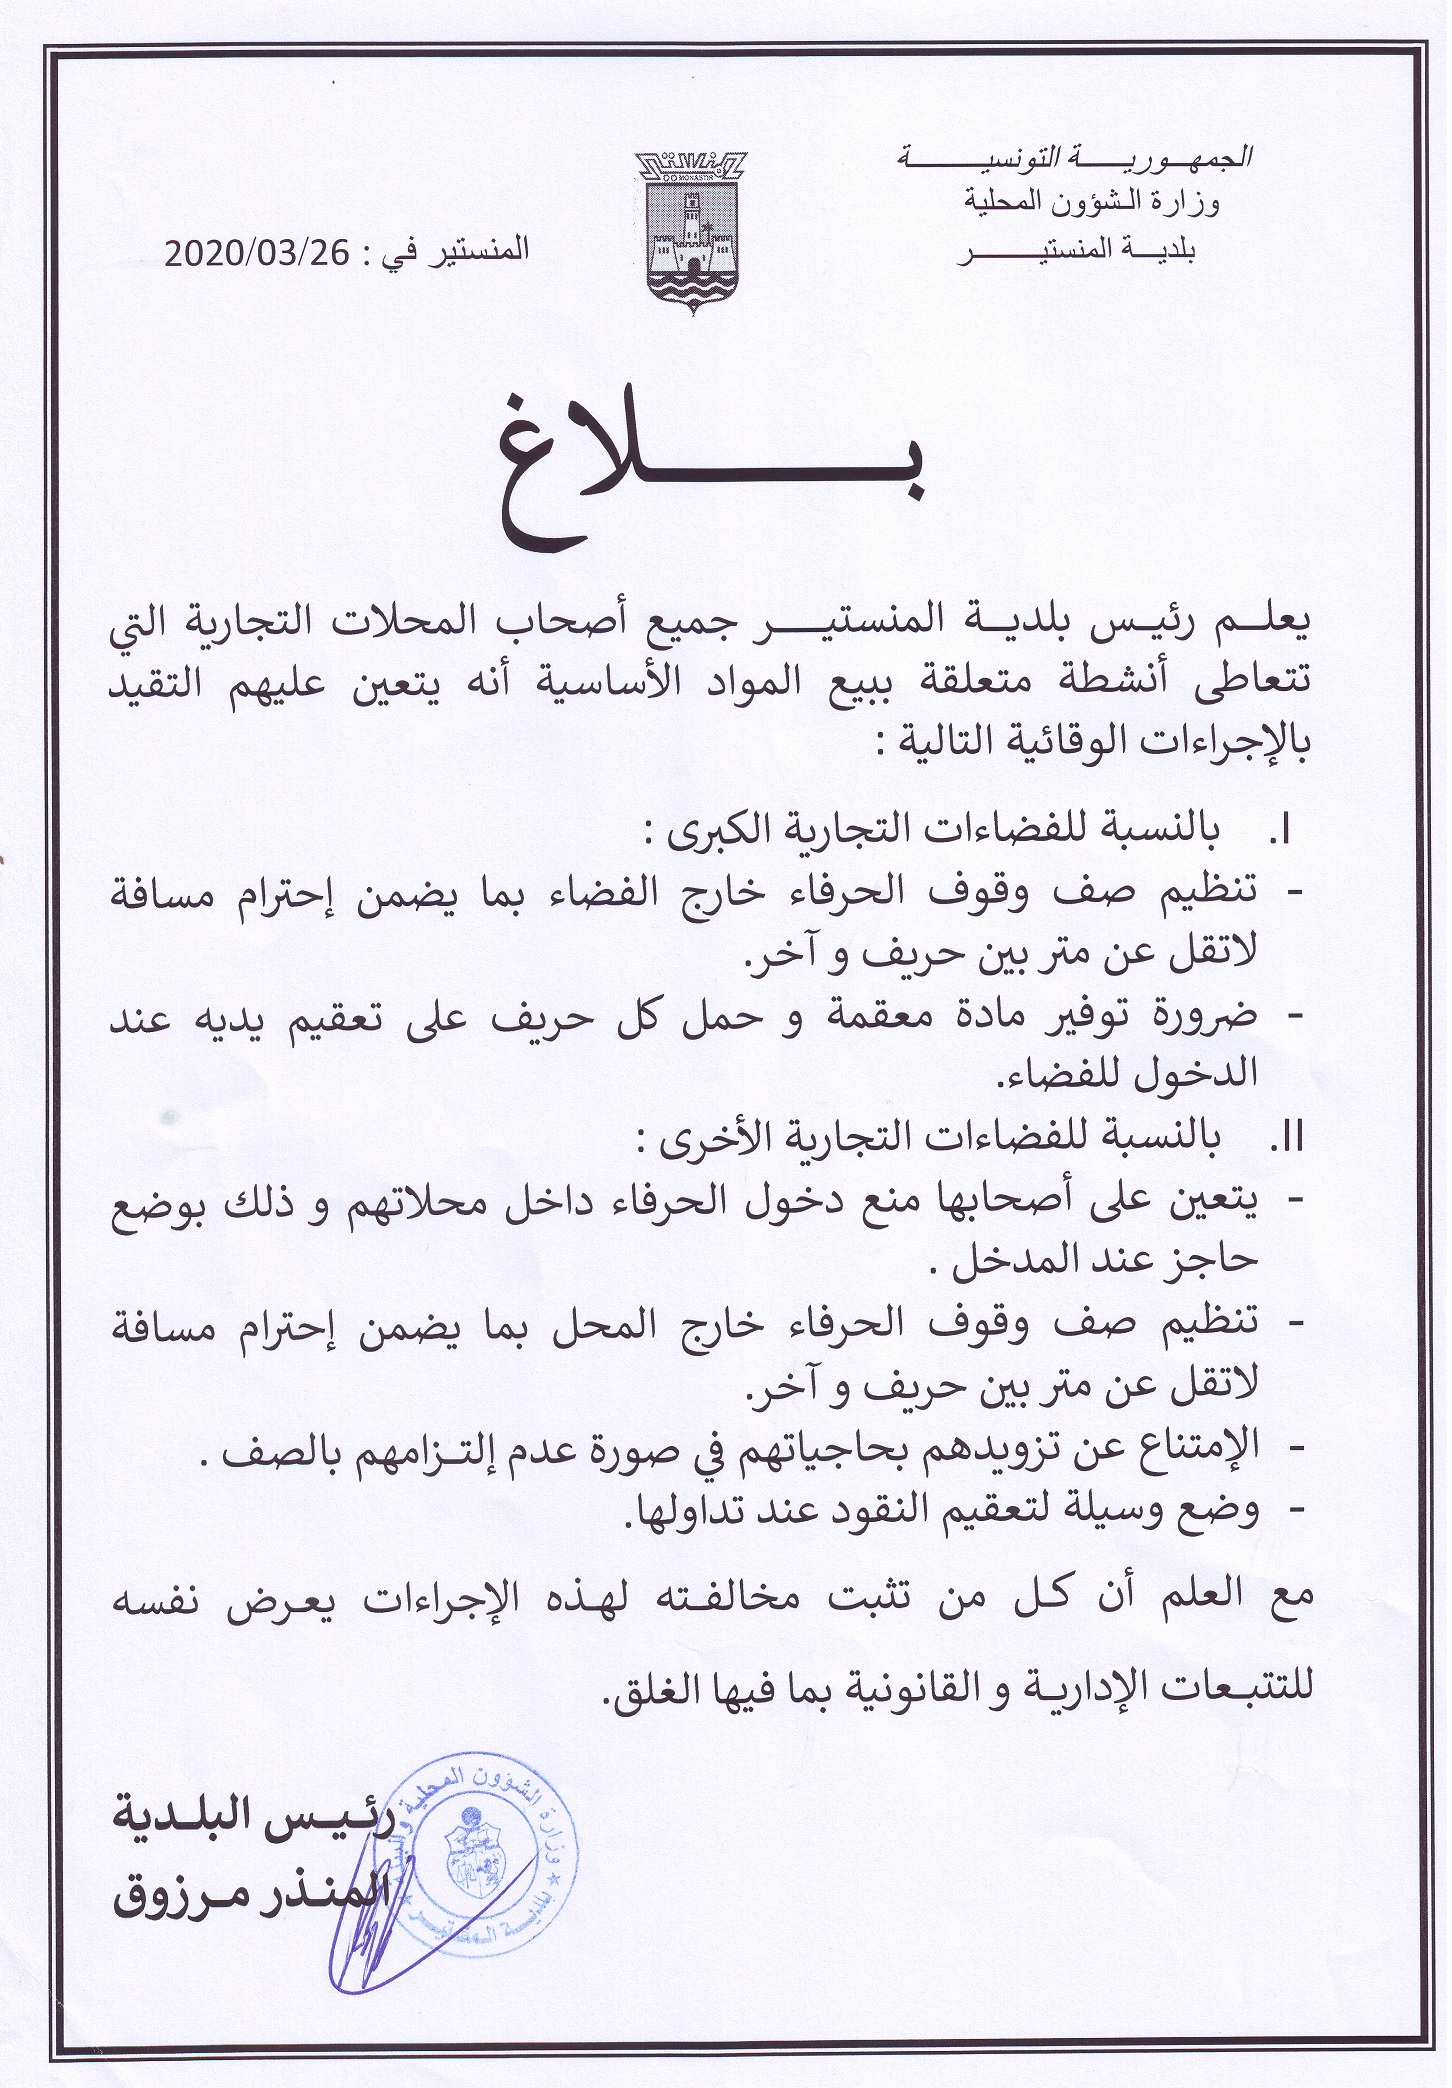 الجمهورية التونسية
وزارة الشؤون المحلية
بلدية المنستير
المنستير
MONASTIR
المنستير في : 2020/03/26
بلاغ
يعلم رئيس بلدية المنستير جميع أصحاب المحلات التجارية التي
تتعاطى أنشطة متعلقة ببيع المواد الأساسية أنه يتعين عليهم التقيد
بالإجراءات الوقائية التالية :
I. بالنسبة للفضاءات التجارية الكبرى :
- تنظيم صف وقوف الحرفاء خارج الفضاء بما يضمن إحترام مسافة
لاتقل عن متر بين حريف و آخر.
- ضرورة توفير مادة معقمة و حمل كل حريف على تعقيم يديه عند
الدخول للفضاء.
II. بالنسبة للفضاءات التجارية الأخرى :
- يتعين على أصحابها منع دخول الحرفاء داخل محلاتهم و ذلك بوضع
حاجز عند المدخل .
- تنظيم صف وقوف الحرفاء خارج المحل بما يضمن إحترام مسافة
لاتقل عن متر بين حريف و آخر.
- الإمتناع عن تزويدهم بحاجياتهم في صورة عدم إلتزامهم بالصف .
- وضع وسيلة لتعقيم النقود عند تداولها.
مع العلم أن كل من تثبت مخالفته لهذه الإجراءات يعرض نفسه
للتتبعات الإدارية و القانونية بما فيها الغلق.
رئيس البلدية
المنذر مرزوق
وزارة الشؤون المحلية
بلدية المنستير